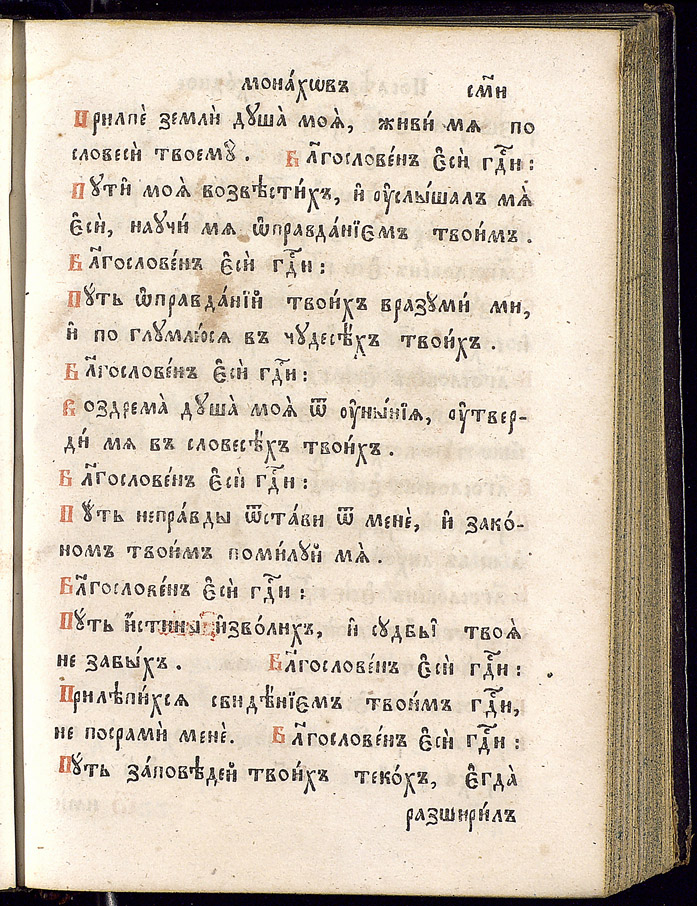 мона́хѡвъ см҃и
Прилпѐ землѝ дꙋша̀ моѧ̀, живи́ мѧ по
словесѝ твоемꙋ̀. Бл҃гослове́нъ є҆сѝ гдⷭ҇и:
Пꙋтѝ моѧ̀ возвѣсти́хъ, и҆ ᲂу҆слы́шалъ мѧ̀
є҆сѝ, научи́ мѧ ѡ҆правда́нїємъ твои́мъ.
Бл҃гослове́нъ є҆сѝ гдⷭ҇и:
Пꙋ́ть ѡ҆правда́нїй твои́хъ вразꙋми́ ми,
и҆ по глꙋмлю́сѧ въ чꙋдесѣ́хъ твои́хъ.
Бл҃гослове́нъ є҆сѝ гдⷭ҇и:
Воздрема̀ дꙋша̀ моѧ̀ ѿ ᲂу҆ны́нїѧ, ᲂу҆твер-
ди́ мѧ въ словесѣ́хъ твои́хъ.
Бл҃гослове́нъ є҆сѝ гдⷭ҇и:
Пꙋ́ть непра́вды ѿста́ви ѿ менѐ, и҆ зако́-
номъ твои́мъ поми́лꙋй мѧ̀.
Бл҃гослове́нъ є҆сѝ гдⷭ҇и:
Пꙋ́ть и҆́стины и҆зво́лихъ, и҆ сꙋдьбы̀ твоѧ̀
не забы́хъ. Бл҃гослове́нъ є҆сѝ гдⷭ҇и:
Прилѣпи́хсѧ свидѣ́нїємъ твои́мъ гдⷭ҇и,
не посрамѝ менѐ. Бл҃гослове́нъ є҆сѝ гдⷭ҇и:
Пꙋ́ть за́повѣдей твои́хъ теко́хъ, є҆гда̀
разшири́лъ